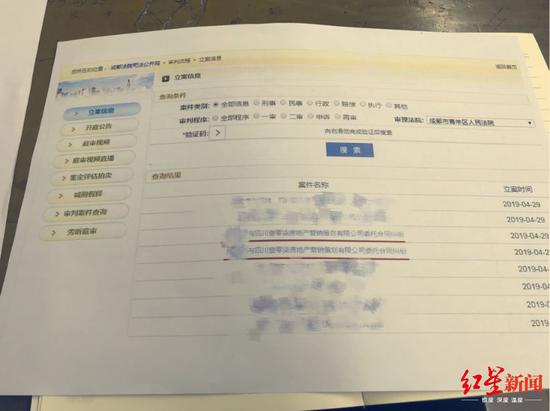 您所在的位置：成都法院司法公开网 > 审判流程 > 立案信息
返回首页
立案信息
立案信息
开庭公告
庭审视频
庭审视频直播
鉴定评估拍卖
减刑假释
审判案件查询
旁听庭审
查询条件
案件类别：全部信息 刑事 民事 行政 赔偿 执行 其他
审判程序：全部程序 一审 二审 申诉 再审 审理法院：成都市青羊区人民法院
*验证码： > 向右滑动完成验证后搜索
搜 索
查询结果
案件名称 立案时间
2019-04-29
2019-04-29
与四川壹零柒房地产营销策划有限公司委托合同纠纷 2019-04-29
与四川壹零柒房地产营销策划有限公司委托合同纠纷 2019-04-2
2019-04-2
2019-04-
2019-
红星新闻
深度 温度